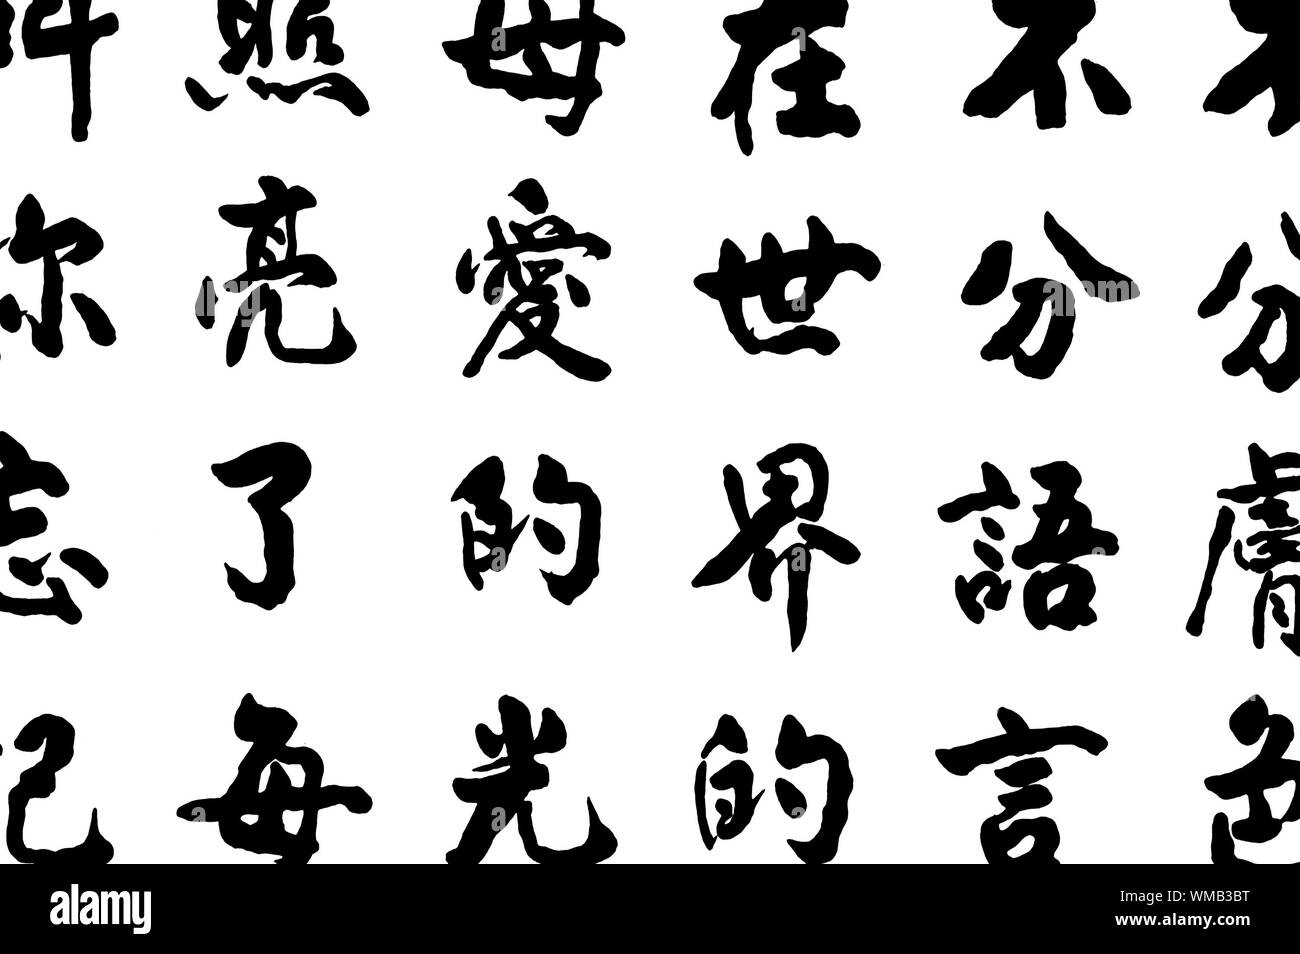 不分膚色
不分語言
在世界的
母愛的光
照亮了每
叫你忘記
alamy
Image ID: WMB3BT
www.alamy.com